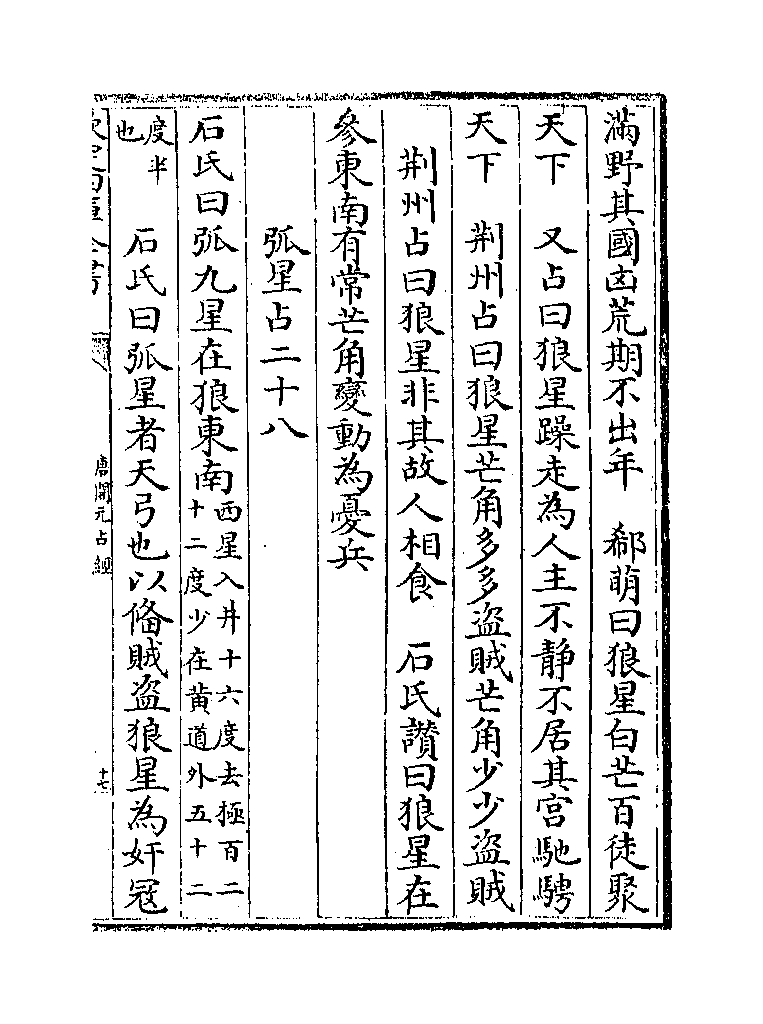 滿野其國凶荒期不出年　郗萌曰狼星白芒百徒聚
天下　又占曰狼星躁走為人主不静不居其宫馳騁
天下　荆州占曰狼星芒角多多盗賊芒角少少盗賊
荆州占曰狼星非其故人相食　石氏讚曰狼星在
參東南有常芒角變動為憂兵
弧星占二十八
石氏曰弧九星在狼東南西星入井十六度去極百二
十二度少在黄道外五十二
度半
也　石氏曰弧星者天弓也以俻賊盗狼星為奸冦
唐開元占經
十七